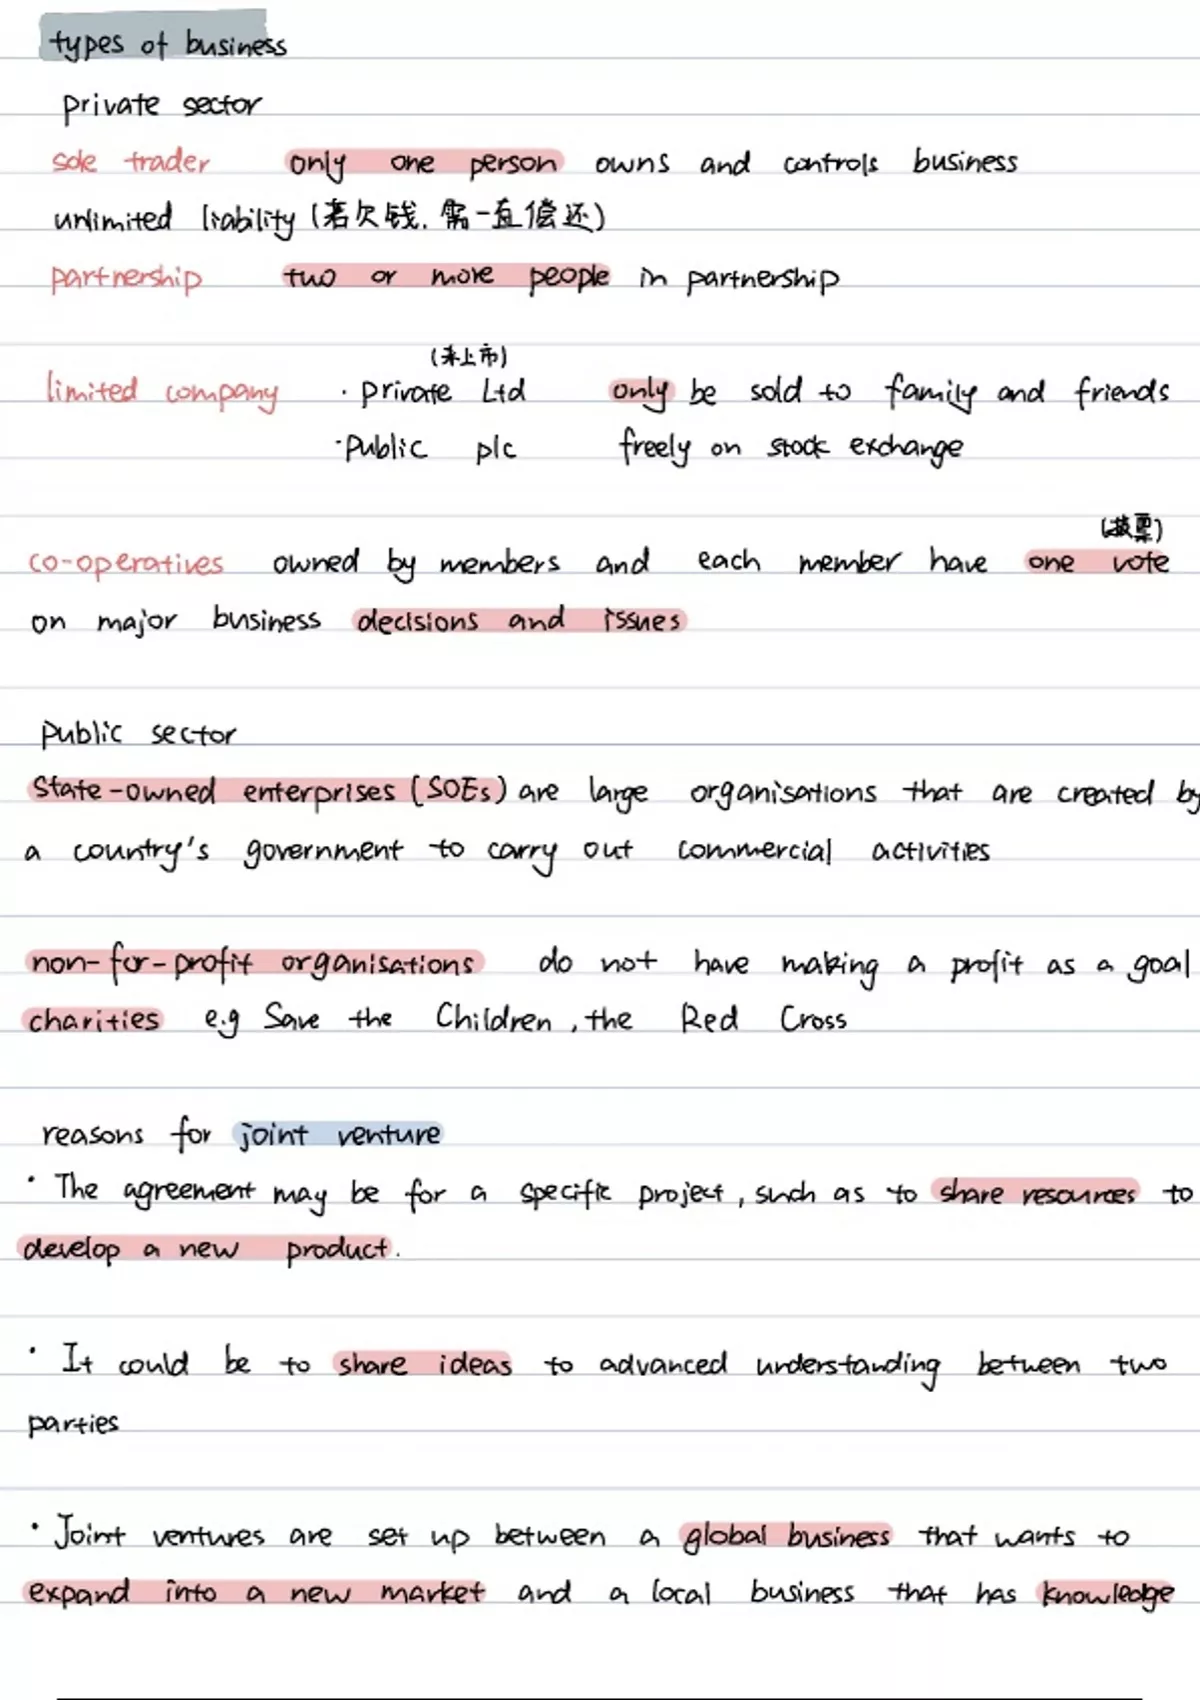 types of business
private sector
sole trader only one person owns and controls business
unlimited liability (若欠钱, 需一直偿还)
partnership two or more people in partnership
(未上市)
limited company · Private Ltd only be sold to family and friends
· Public plc freely on stock exchange
(投票)
co-operatives owned by members and each member have one vote
on major business decisions and issues
Public sector
State-owned enterprises (SOEs) are large organisations that are created by
a country's government to carry out commercial activities
non-for-profit organisations do not have making a profit as a goal
charities e.g Save the Children, the Red Cross
reasons for joint venture
· The agreement may be for a specific project, such as to share resources to
develop a new product.
· It could be to share ideas to advanced understanding between two
parties
· Joint ventures are set up between a global business that wants to
expand into a new market and a local business that has knowledge